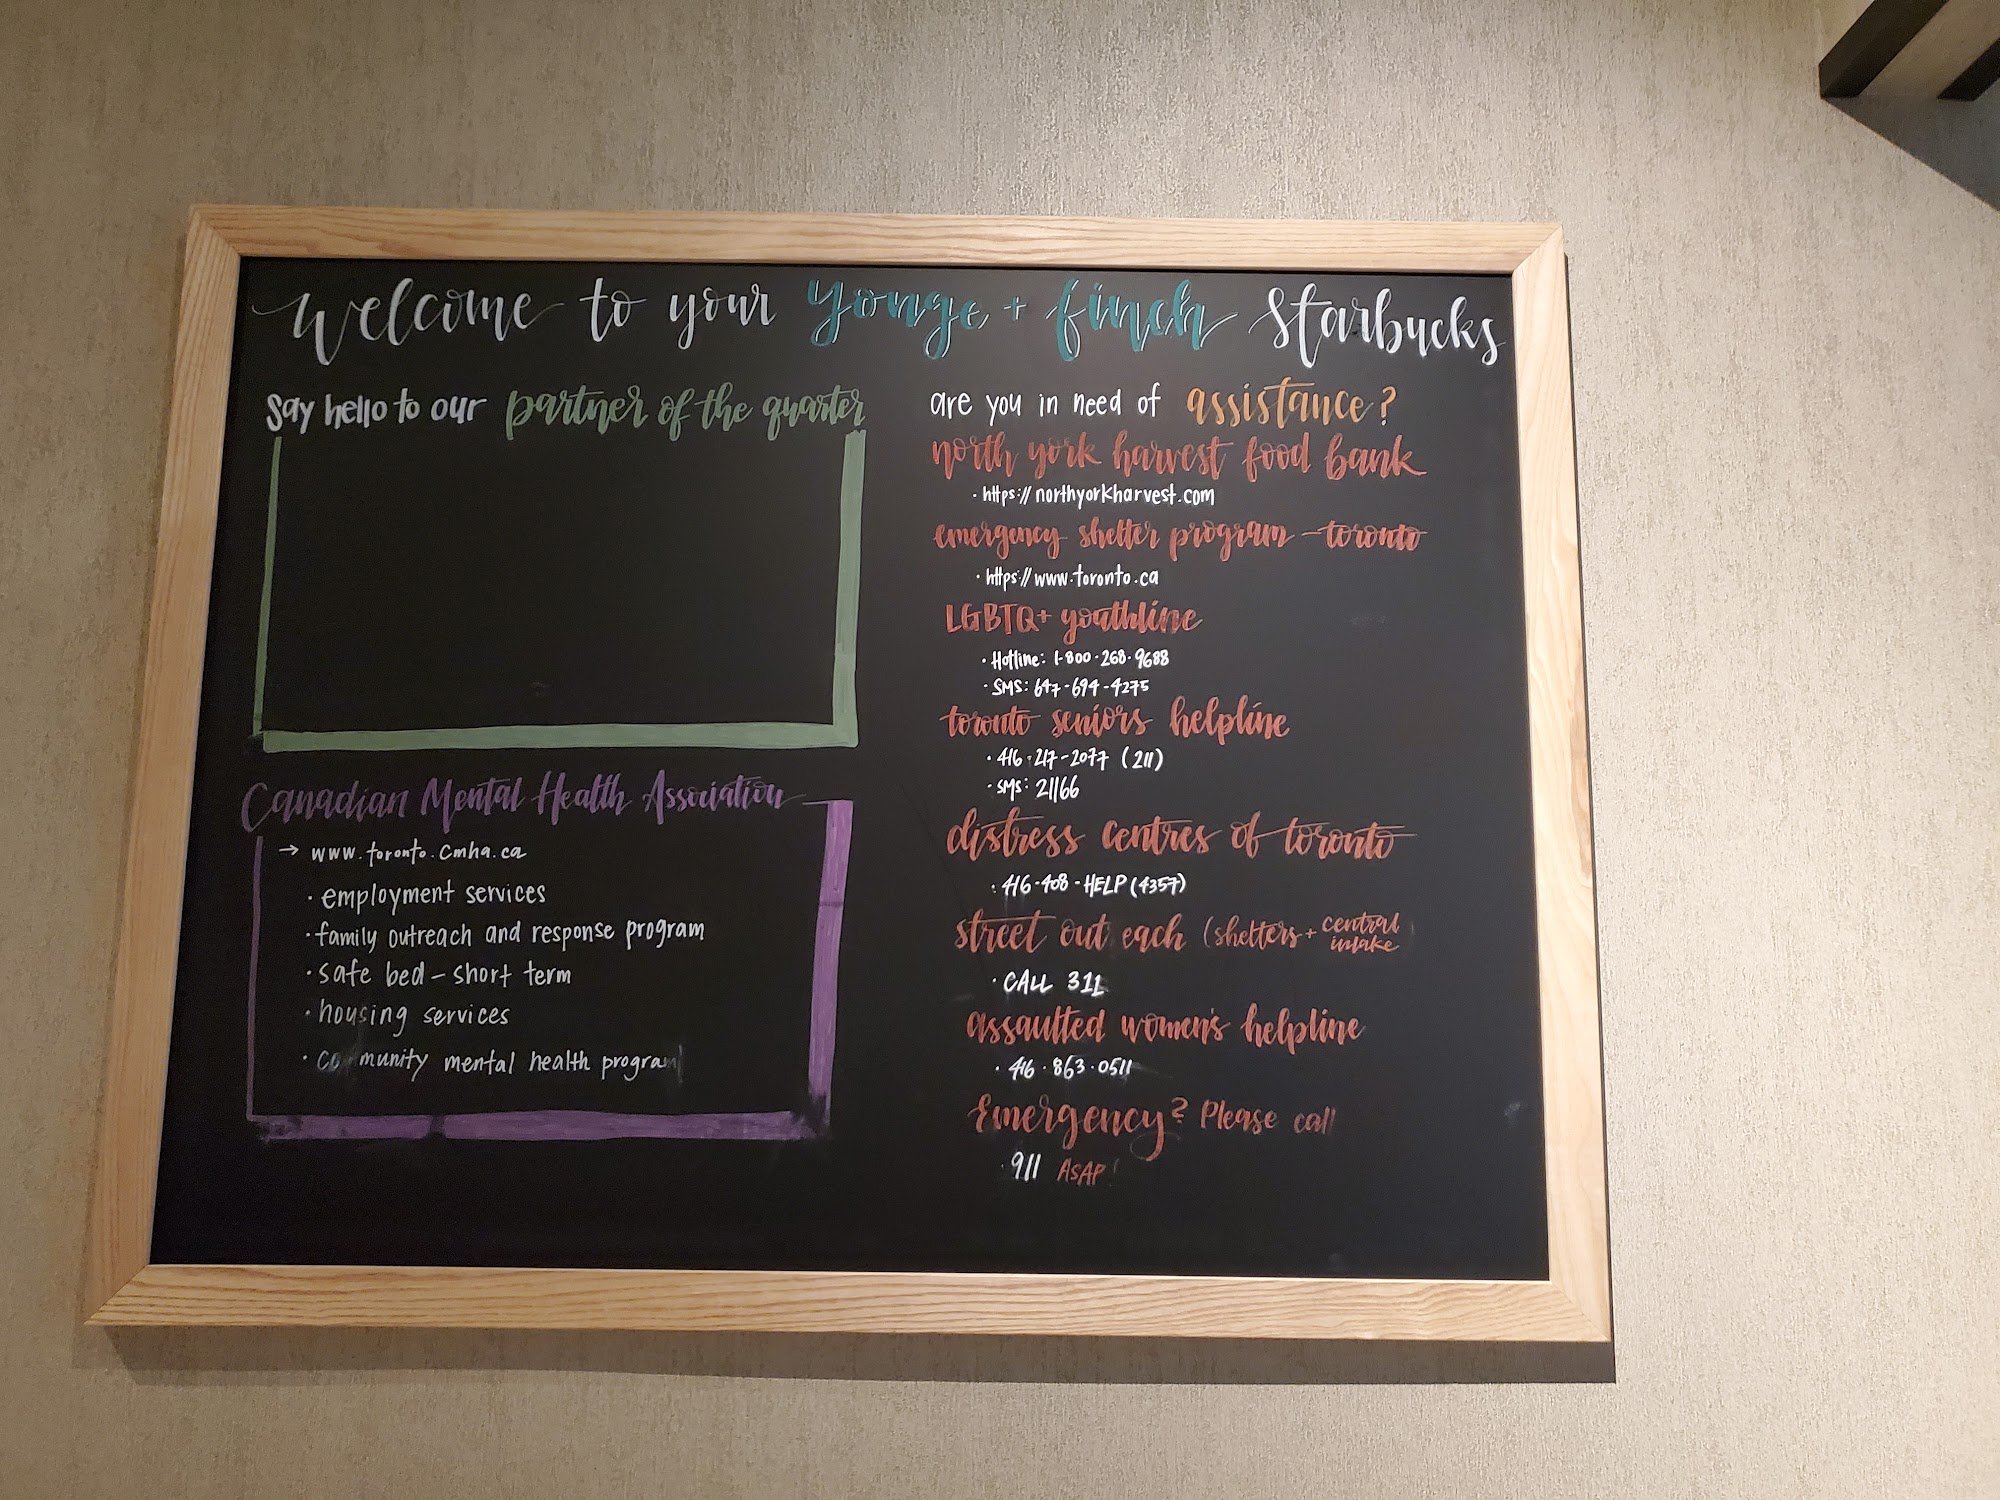 Welcome to your Yonge + Finch Starbucks
Say hello to our partner of the quarter
Canadian Mental Health Association
→ www.toronto.cmha.ca
· employment services
· family outreach and response program
· safe bed – short term
· housing services
· community mental health program
are you in need of assistance?
north york harvest food bank
· https://northyorkharvest.com
emergency shelter program - toronto
· https://www.toronto.ca
LGBTQ+ youthline
· Hotline: 1-800-268-9688
· SMS: 647-694-4275
toronto seniors helpline
· 416-217-2077 (211)
· SMS: 21166
distress centres of toronto
· 416-408-HELP (4357)
street out each (shelters + central intake
· CALL 311
assaulted women's helpline
· 416.863.0511
Emergency? Please call
· 911 ASAP!